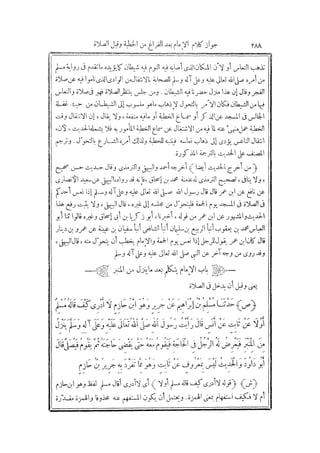 ٢٨٨ جواز كلام الإمام بعد الفراغ من الخطبة وقبل الصلاة
تذهب النعاس أو لأن المكان الذى أصابه فيه النوم فيه شيطان كما يؤيده ما تقدم فى رواية مسلم
من أمره صلى الله تعالى عليه وعلى آله وسلم للصحابة بالانتقال من الوادى الذى ناموا فيه عن صلاة
الفجر وقال إن هذا منزل حضرنا فيه الشيطان. ومن جلس ينتظر الصلاة فهو فى صلاة والنعاس
فيها من الشيطان فكان الأمر بالتحول لإذهاب ما هو منسوب إلى الشيطان من حيث غفلة
الجالس فى المسجد عن الذكر أو سماع الخطبة أو ما فيه منفعة، ولا يقال إن الانتقال وقت
الخطبة عمل منهى عنه لما فيه من الاشتغال عن سماع الخطبة المأمور به فلا يشمله الحديث، لأن
انتقال الناعس يؤدى إلى ذهاب نعاسه فينتبه للخطبة ولذلك أمره الشارع بالتحول. وترجم
المصنف على الحديث بالترجمة المذكورة
﴿ من أخرج الحديث أيضا ﴾ أخرجه أحمد والبيهقى والترمذى وقال حديث حسن صحيح
، ولا ينافى، تصحيح الترمذى له عنعنة محمد بن إسحاق، فإنه قد رواه البيهقى عن سعيد الأنصارى
عن نافع عن ابن عمر قال قال رسول الله صلى الله تعالى عليه وعلى آله وسلم إذا نعس أحدكم
فى الصلاة فى المسجد يوم الجمعة فليتحول من مجلسه إلى غيره، قال البيهقى، ولا يثبت رفع هذا
الحديث والمشهور عن ابن عمر من قوله، أخبرناه، أبو زكريا بن أبى إسحاق وغيره قالوا ثنا أبو
العباس محمد بن يعقوب أنبأ الربيع بن سليمان أنبأ الشافعى أنبأ سفيان بن عيينة عن عمرو بن دينار
قال كان ابن عمر يقول للرجل إذا نعس يوم الجمعة والإمام يخطب أن يتحول منه، قال البيهقى،
وقد روى من وجه آخر عن النبى صلى الله تعالى عليه وعلى آله وسلم
باب الإمام يتكلم بعد ما ينزل من المنبر
يعنى وقبل أن يدخل فى الصلاة
﴿ص﴾ حَدَّثَنَا مُسْلِمُ بْنُ إِبْرَاهِيمَ عَنْ جَرِيرٍ وَهُوَ ابْنُ حَازِمٍ لَا أَدْرِى كَيْفَ قَالَهُ مُسْلِمٌ
أَوَّلًا عَنْ ثَابِتٍ عَنْ أَنَسٍ قَالَ رَأَيْتُ رَسُولَ اللهِ صَلَّى اللهُ تَعَالَى عَلَيْهِ وَعَلَى آلِهِ وَسَلَّمَ يَنْزِلُ
مِنَ الْمِنْبَرِ فَيَعْرِضُ لَهُ الرَّجُلُ فِى الْحَاجَةِ فَيَقُومُ مَعَهُ حَتَّى يَقْضِىَ حَاجَتَهُ ثُمَّ يَقُومُ فَيُصَلِّى قَالَ
أَبُو دَاوُدَ وَالْحَدِيثُ لَيْسَ بِمَعْرُوفٍ عَنْ ثَابِتٍ وَهُوَ مِمَّا تَفَرَّدَ بِهِ جَرِيرُ بْنُ حَازِمٍ
﴿ش﴾ ﴿قوله لا أدرى كيف قاله مسلم أولا﴾ أى لا أدرى أقال مسلم لفظ وهو ابن حازم
أم لا فكيف استفهام بمعنى الهمزة. ويحتمل أن يكون المستفهم عنه محذوفا والهمزة مقدرة